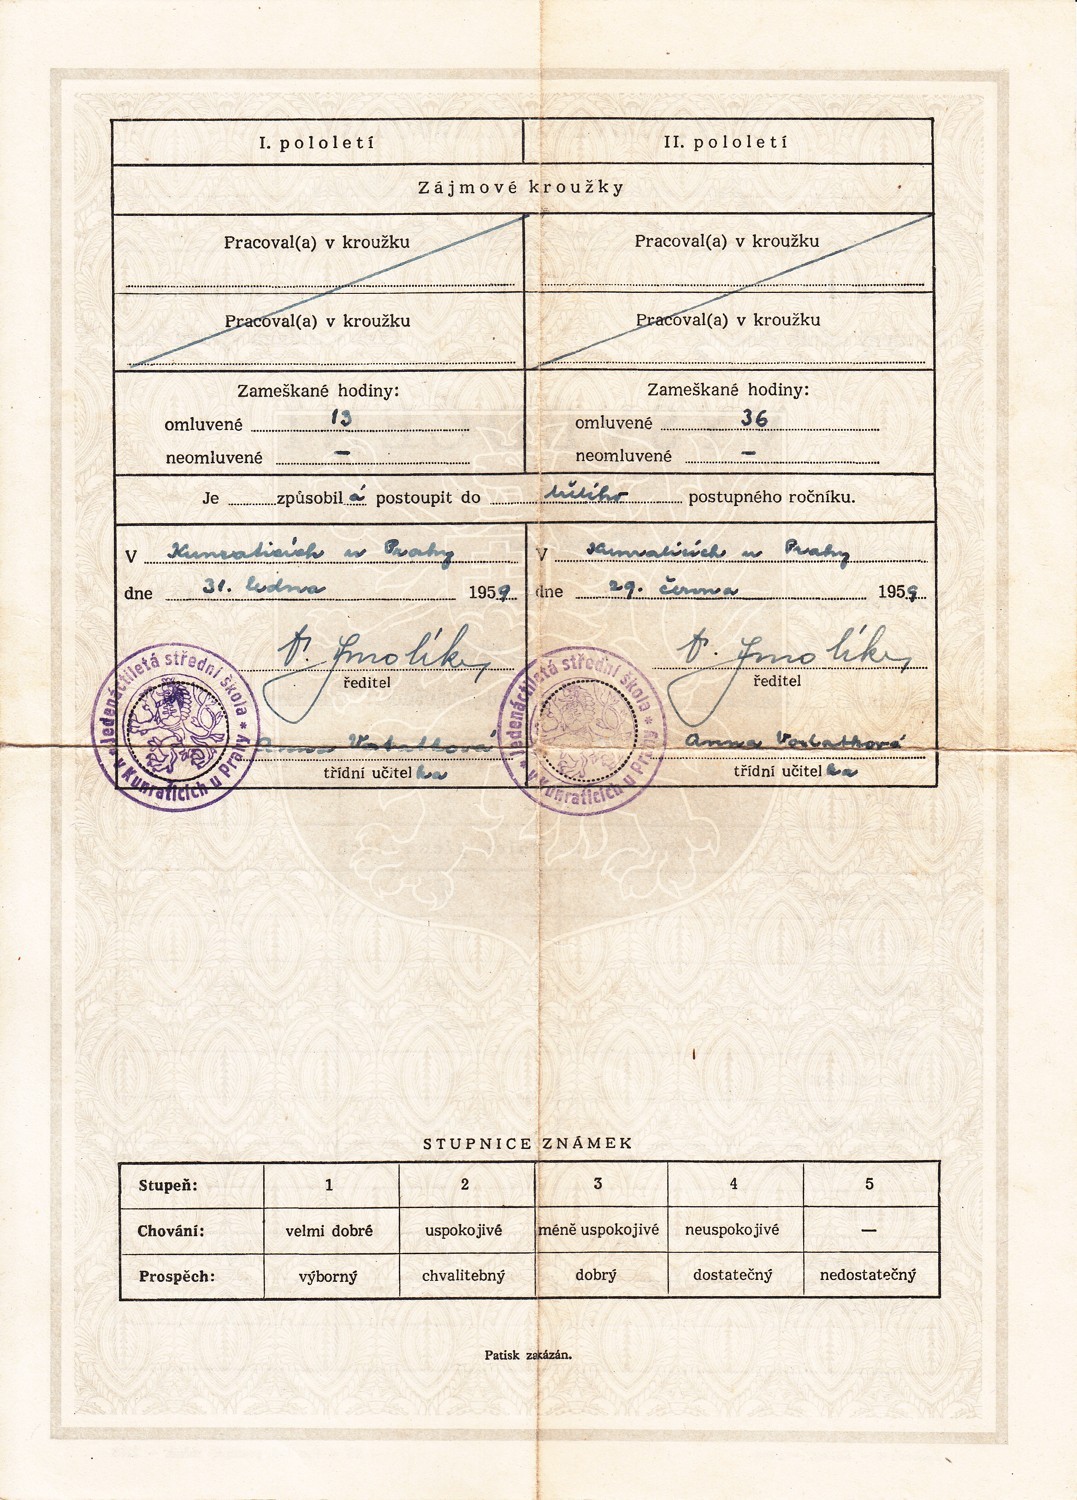 I. pololetí II. pololetí
Zájmové kroužky
Pracoval(a) v kroužku Pracoval(a) v kroužku
Pracoval(a) v kroužku Pracoval(a) v kroužku
Zameškané hodiny: Zameškané hodiny:
omluvené 13 omluvené 36
neomluvené – neomluvené –
Je způsobil á postoupit do postupného ročníku.
V Kunraticích u Prahy V Kunraticích u Prahy
dne 31. ledna 1959 dne 29. června 1959
ředitel ředitel
Jedenáctiletá střední škola * v Kunraticích u Prahy *
Jedenáctiletá střední škola * v Kunraticích u Prahy *
Anna Anna
třídní učitelka třídní učitelka
STUPNICE ZNÁMEK
Stupeň: 1 2 3 4 5
Chování: velmi dobré uspokojivé méně uspokojivé neuspokojivé —
Prospěch: výborný chvalitebný dobrý dostatečný nedostatečný
Patisk zakázán.